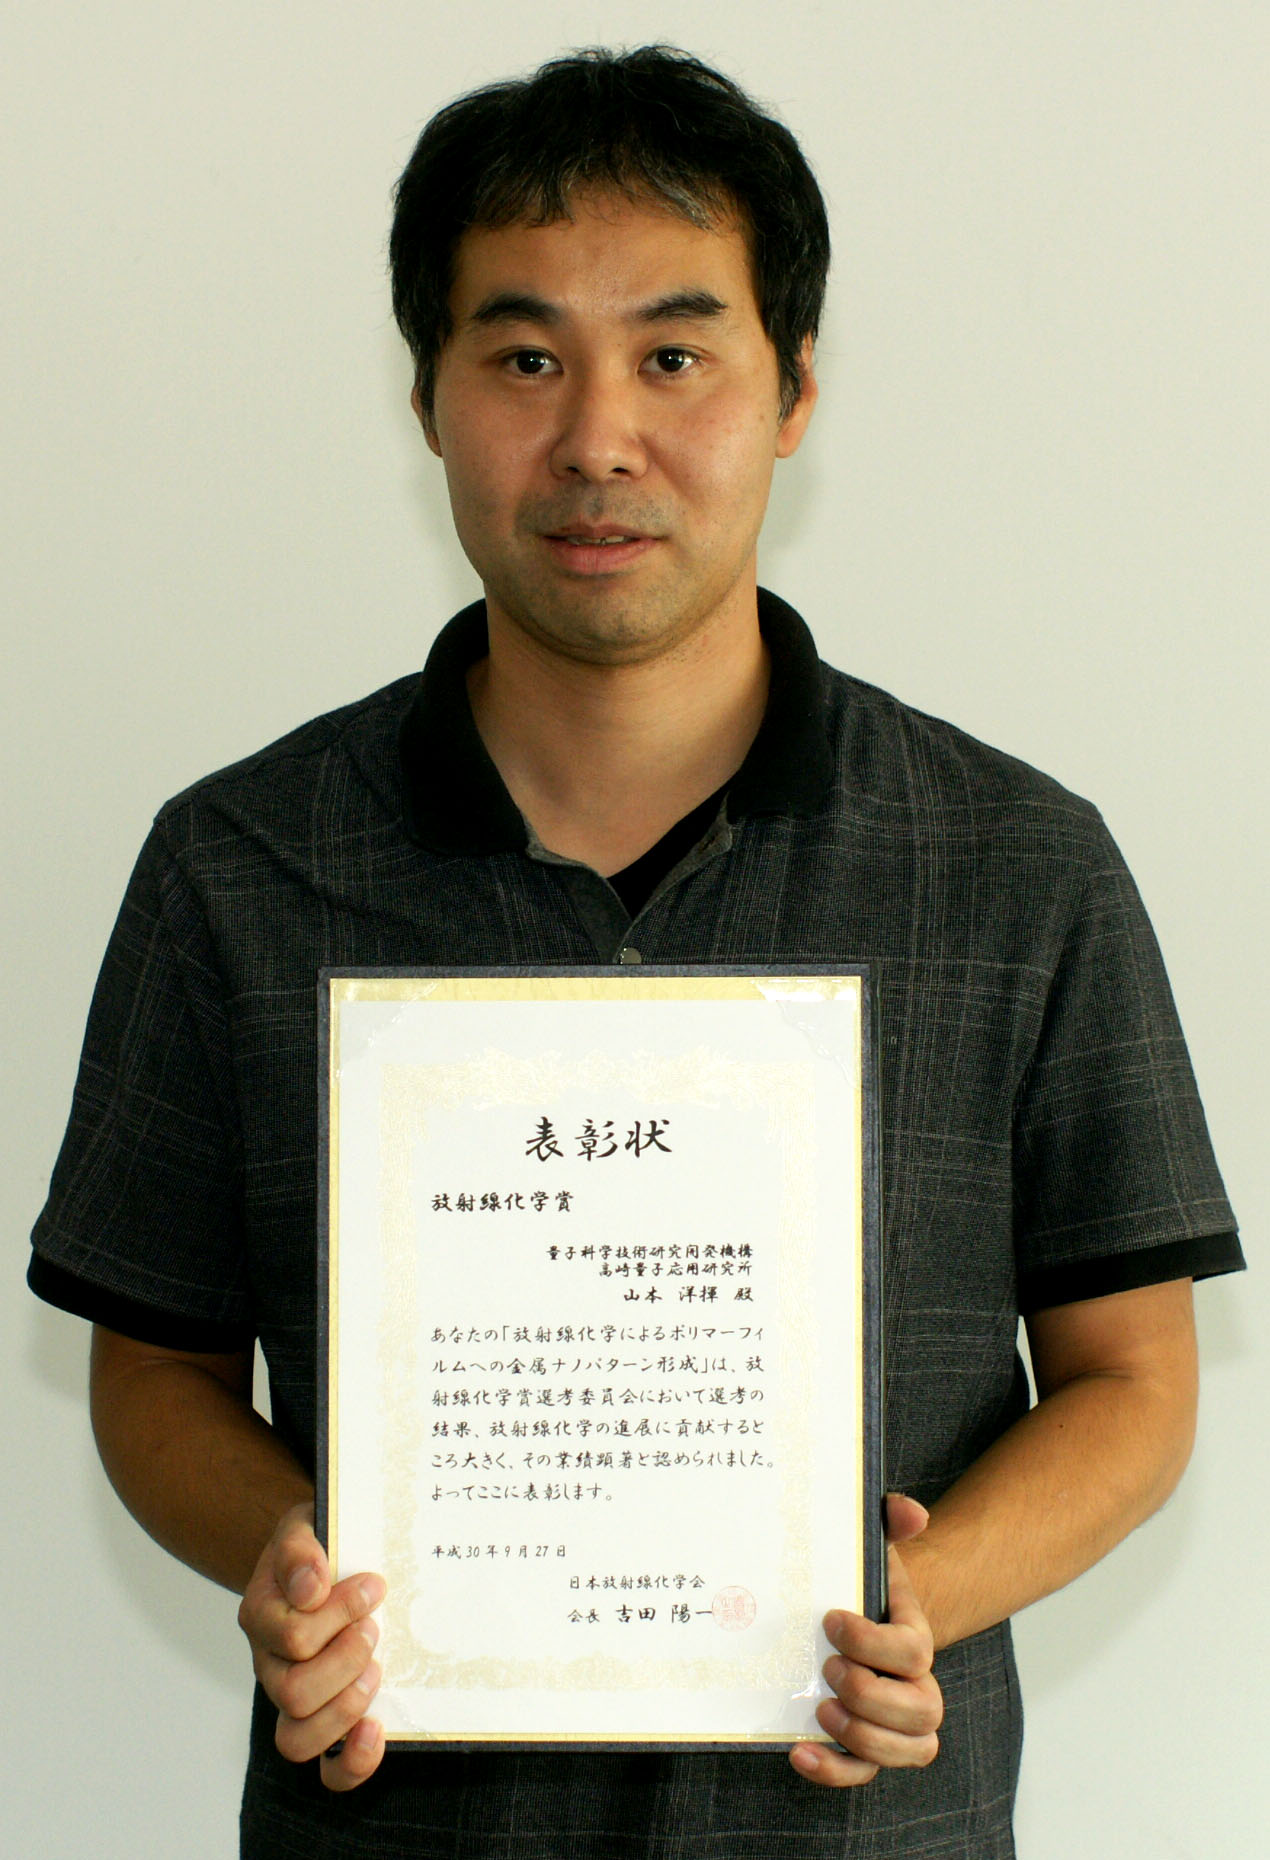 表彰状
放射線化学賞
量子科学技術研究開発機構
高崎量子応用研究所
山本 洋揮 殿
あなたの「放射線化学によるポリマーフィ
ルムへの金属ナノパターン形成」は、放
射線化学賞選考委員会において選考の
結果、放射線化学の進展に貢献すると
ころ大きく、その業績顕著と認められました。
よってここに表彰します。
平成30年9月27日
日本放射線化学会
会長 吉田 陽一